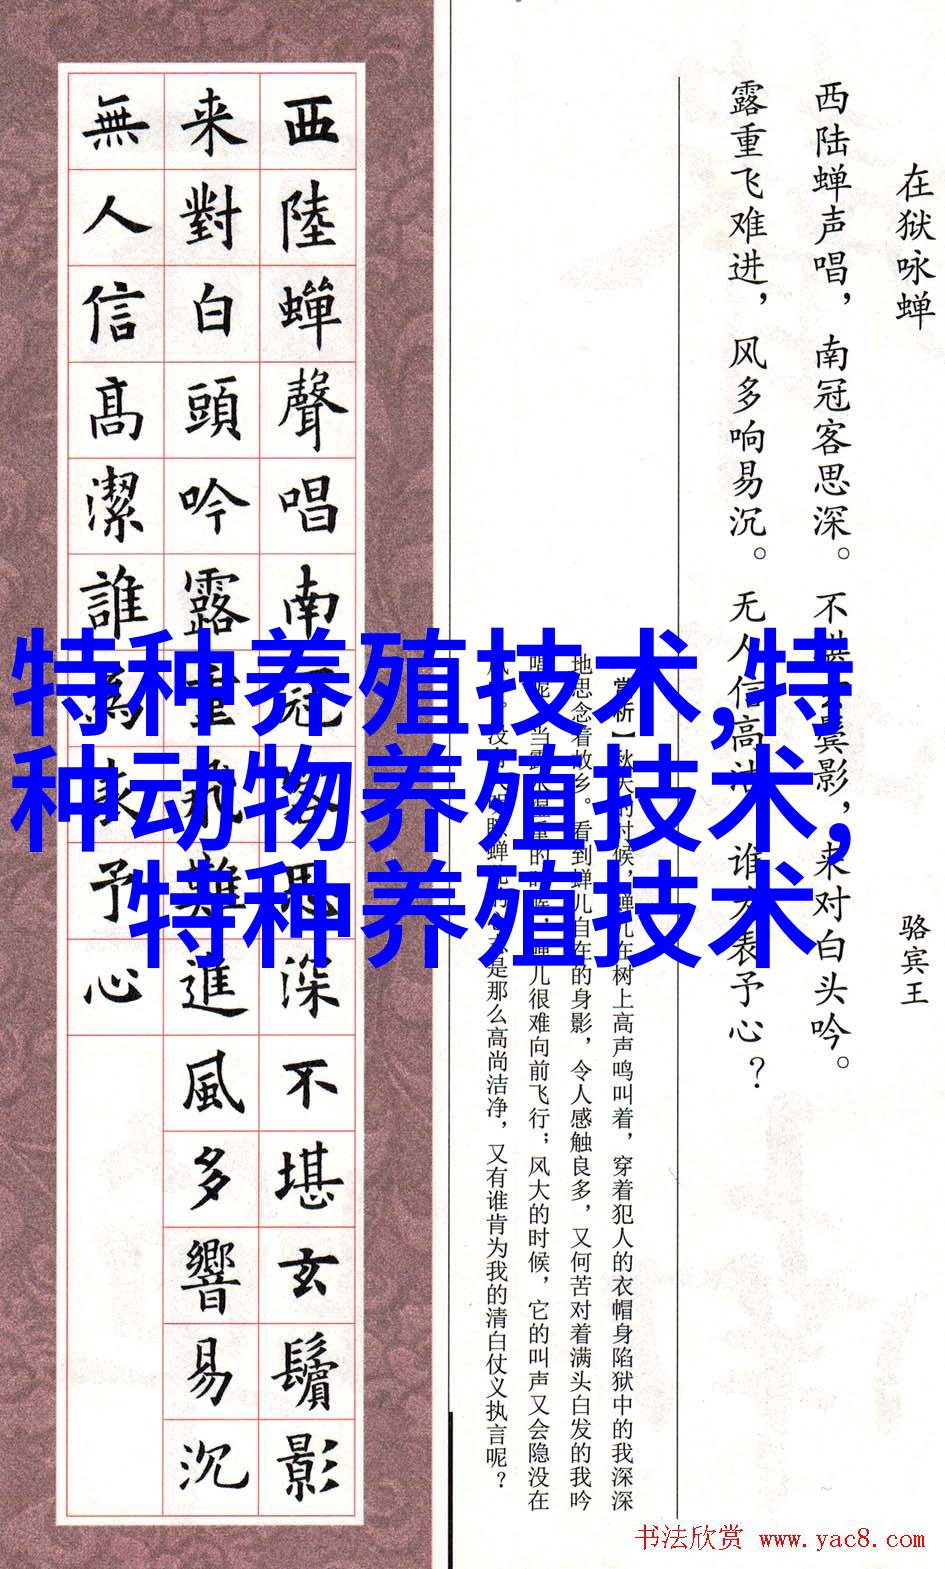 在狱咏蝉
骆宾王
西陆蝉声唱，南冠客思深。不鬓影，来对白头吟。
露重飞难进，风多响易沉。无人信高洁，谁为表予心？
赏析】秋天的时候，蝉儿在树上高声鸣叫着，穿着犯人的衣帽身陷狱中的我深深
地思念着故乡。看到蝉儿自在的身影，令人感触良多，又何苦对着满头白发的我吟
唱呢。当露水重的时候，蝉儿很难向前飞行；风大的时候，它的叫声又会隐没在
风。没蝉是那么高尚洁净，又有谁肯为我的清白仗义执言呢？
西陸蟬聲唱南冠客思深不堪玄鬢影
来對白頭吟露重飛難進風多響易沉
無人信高潔誰為表予心
特种养殖技术,特
种动物养殖技术,
特种养殖技术
书法欣赏 www.yac8.com